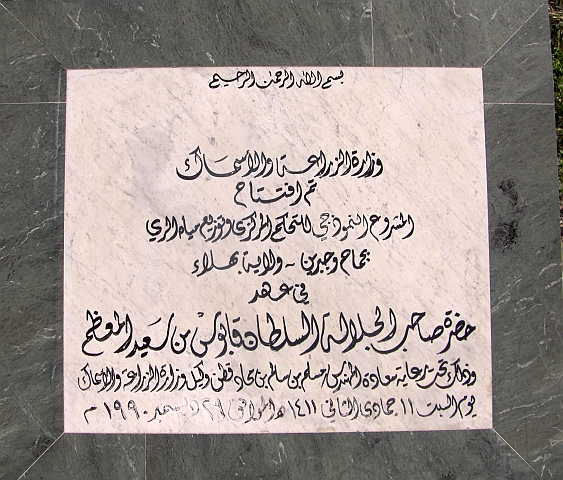 بسم الله الرحمن الرحيم
وزارة الزراعة والأسماك
تم افتتاح
المشروع النموذجي للتحكم المركزي وتوزيع مياه الري
بجماح وجبرين - ولاية بهلاء
في عهد
حضرة صاحب الجلالة السلطان قابوس بن سعيد المعظم
وذلك تحت رعاية سعادة المهندس مسلم بن سالم بن بخات قطن وكيل وزارة الزراعة والأسماك
يوم السبت ١١ جمادى الثاني ١٤١١ هـ الموافق ٢٩ ديسمبر ١٩٩٠ م